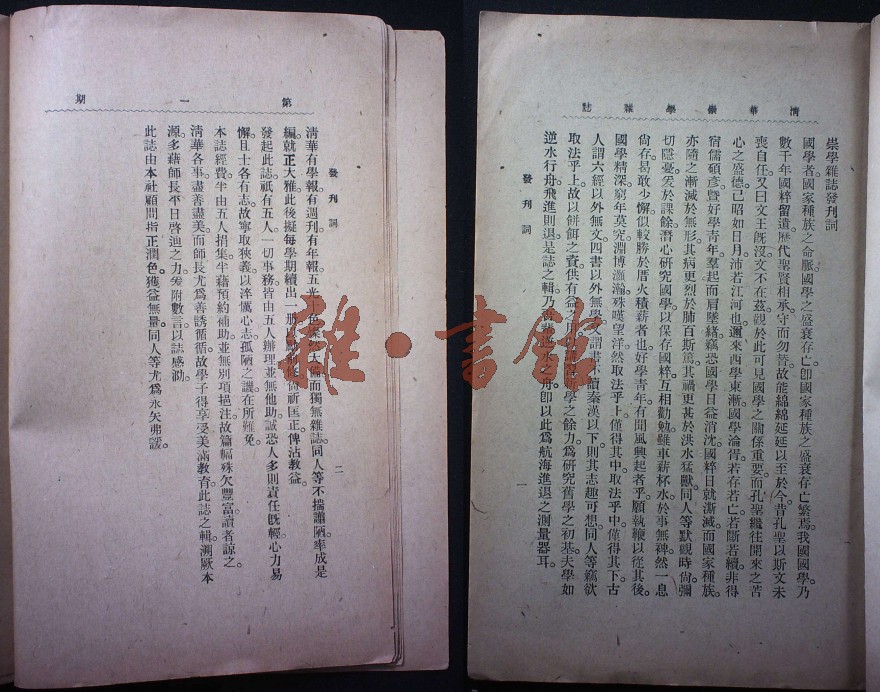 清華崇學雜誌
崇學雜誌發刊詞
國學者國家種族之命脈國學之盛衰存亡卽國家種族之盛衰存亡繫焉我國國學乃
數千年國粹留遺歷代聖賢相承守而勿替故能綿綿延延以至於今昔孔聖以斯文未
喪自任又曰文王旣沒文不在茲觀於此可見國學之關係重要而孔聖繼往開來之苦
心之盛德已昭如日月沛若江河也邇來西學東漸國學淪胥若存若亡若斷若續非得
宿儒碩彥曁好學青年羣起而肩墜緒竊恐國學日益消沈國粹日就澌滅而國家種族
亦隨之漸滅於無形其病更烈於肺百斯篤其禍更甚於洪水猛獸同人等默觀時尙彌
切隱憂爰於課餘潛心硏究國學以保存國粹互相勸勉雖車薪杯水於事無裨然一息
尙存曷敢少懈似較勝於厝火積薪者也好學青年有聞風興起者乎願執鞭以從其後
國學精深窮年莫究淵博浩瀚殊嘆望洋然取法乎上僅得其中取法乎中僅得其下古
人謂六經以外無文四書以外無學又謂書不讀秦漢以下則其志趣可想同人等竊欲
取法乎上故以餠餌之資供有益之用 學之餘力爲硏究舊學之初基夫學如
逆水行舟飛進則退是誌之輯乃 逆水 舟卽以此爲航海進退之測量器耳
發刊詞
一
第一期
發刊詞
二
清華有學報有週刊有年報五光十色燦然大備而獨無雜誌同人等不揣譾陋率成是
編就正大雅此後擬每學期續出一册 尙祈匡正俾沾敎益
發起此誌祇有五人一切事務皆由五人辦理並無他助誠恐人多則責任旣輕心力易
懈且士各有志故寧取狹義以淬慨心志孤陋之譏在所難免
本誌經費半由五人捐集半藉預約補助並無別項挹注故篇幅殊欠豐富讀者諒之
清華各事盡善盡美而師長尤爲善誘循循故學子得享受美滿敎育此誌之輯溯厥本
源多藉師長平日啓迪之力爰附數言以誌感泐
此誌由本社顧問指正潤色獲益無量同人等尤爲永矢弗諼
雜·書館